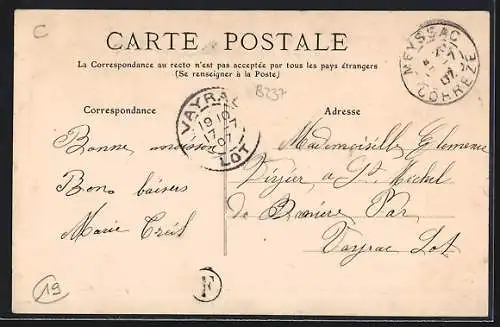 C
CARTE POSTALE
La Correspondance au recto n'est pas acceptée par tous les pays étrangers
(Se renseigner à la Poste)
MEYSSAC
CORRÈZE
B237
Correspondance
Adresse
VAYRAC
19 10
17 -7
07
LOT
Bonne moisson
Bons baisers
Marie
Mademoiselle Clemence
a St Michel
de Baniere Par
Vayrac Lot
19
F